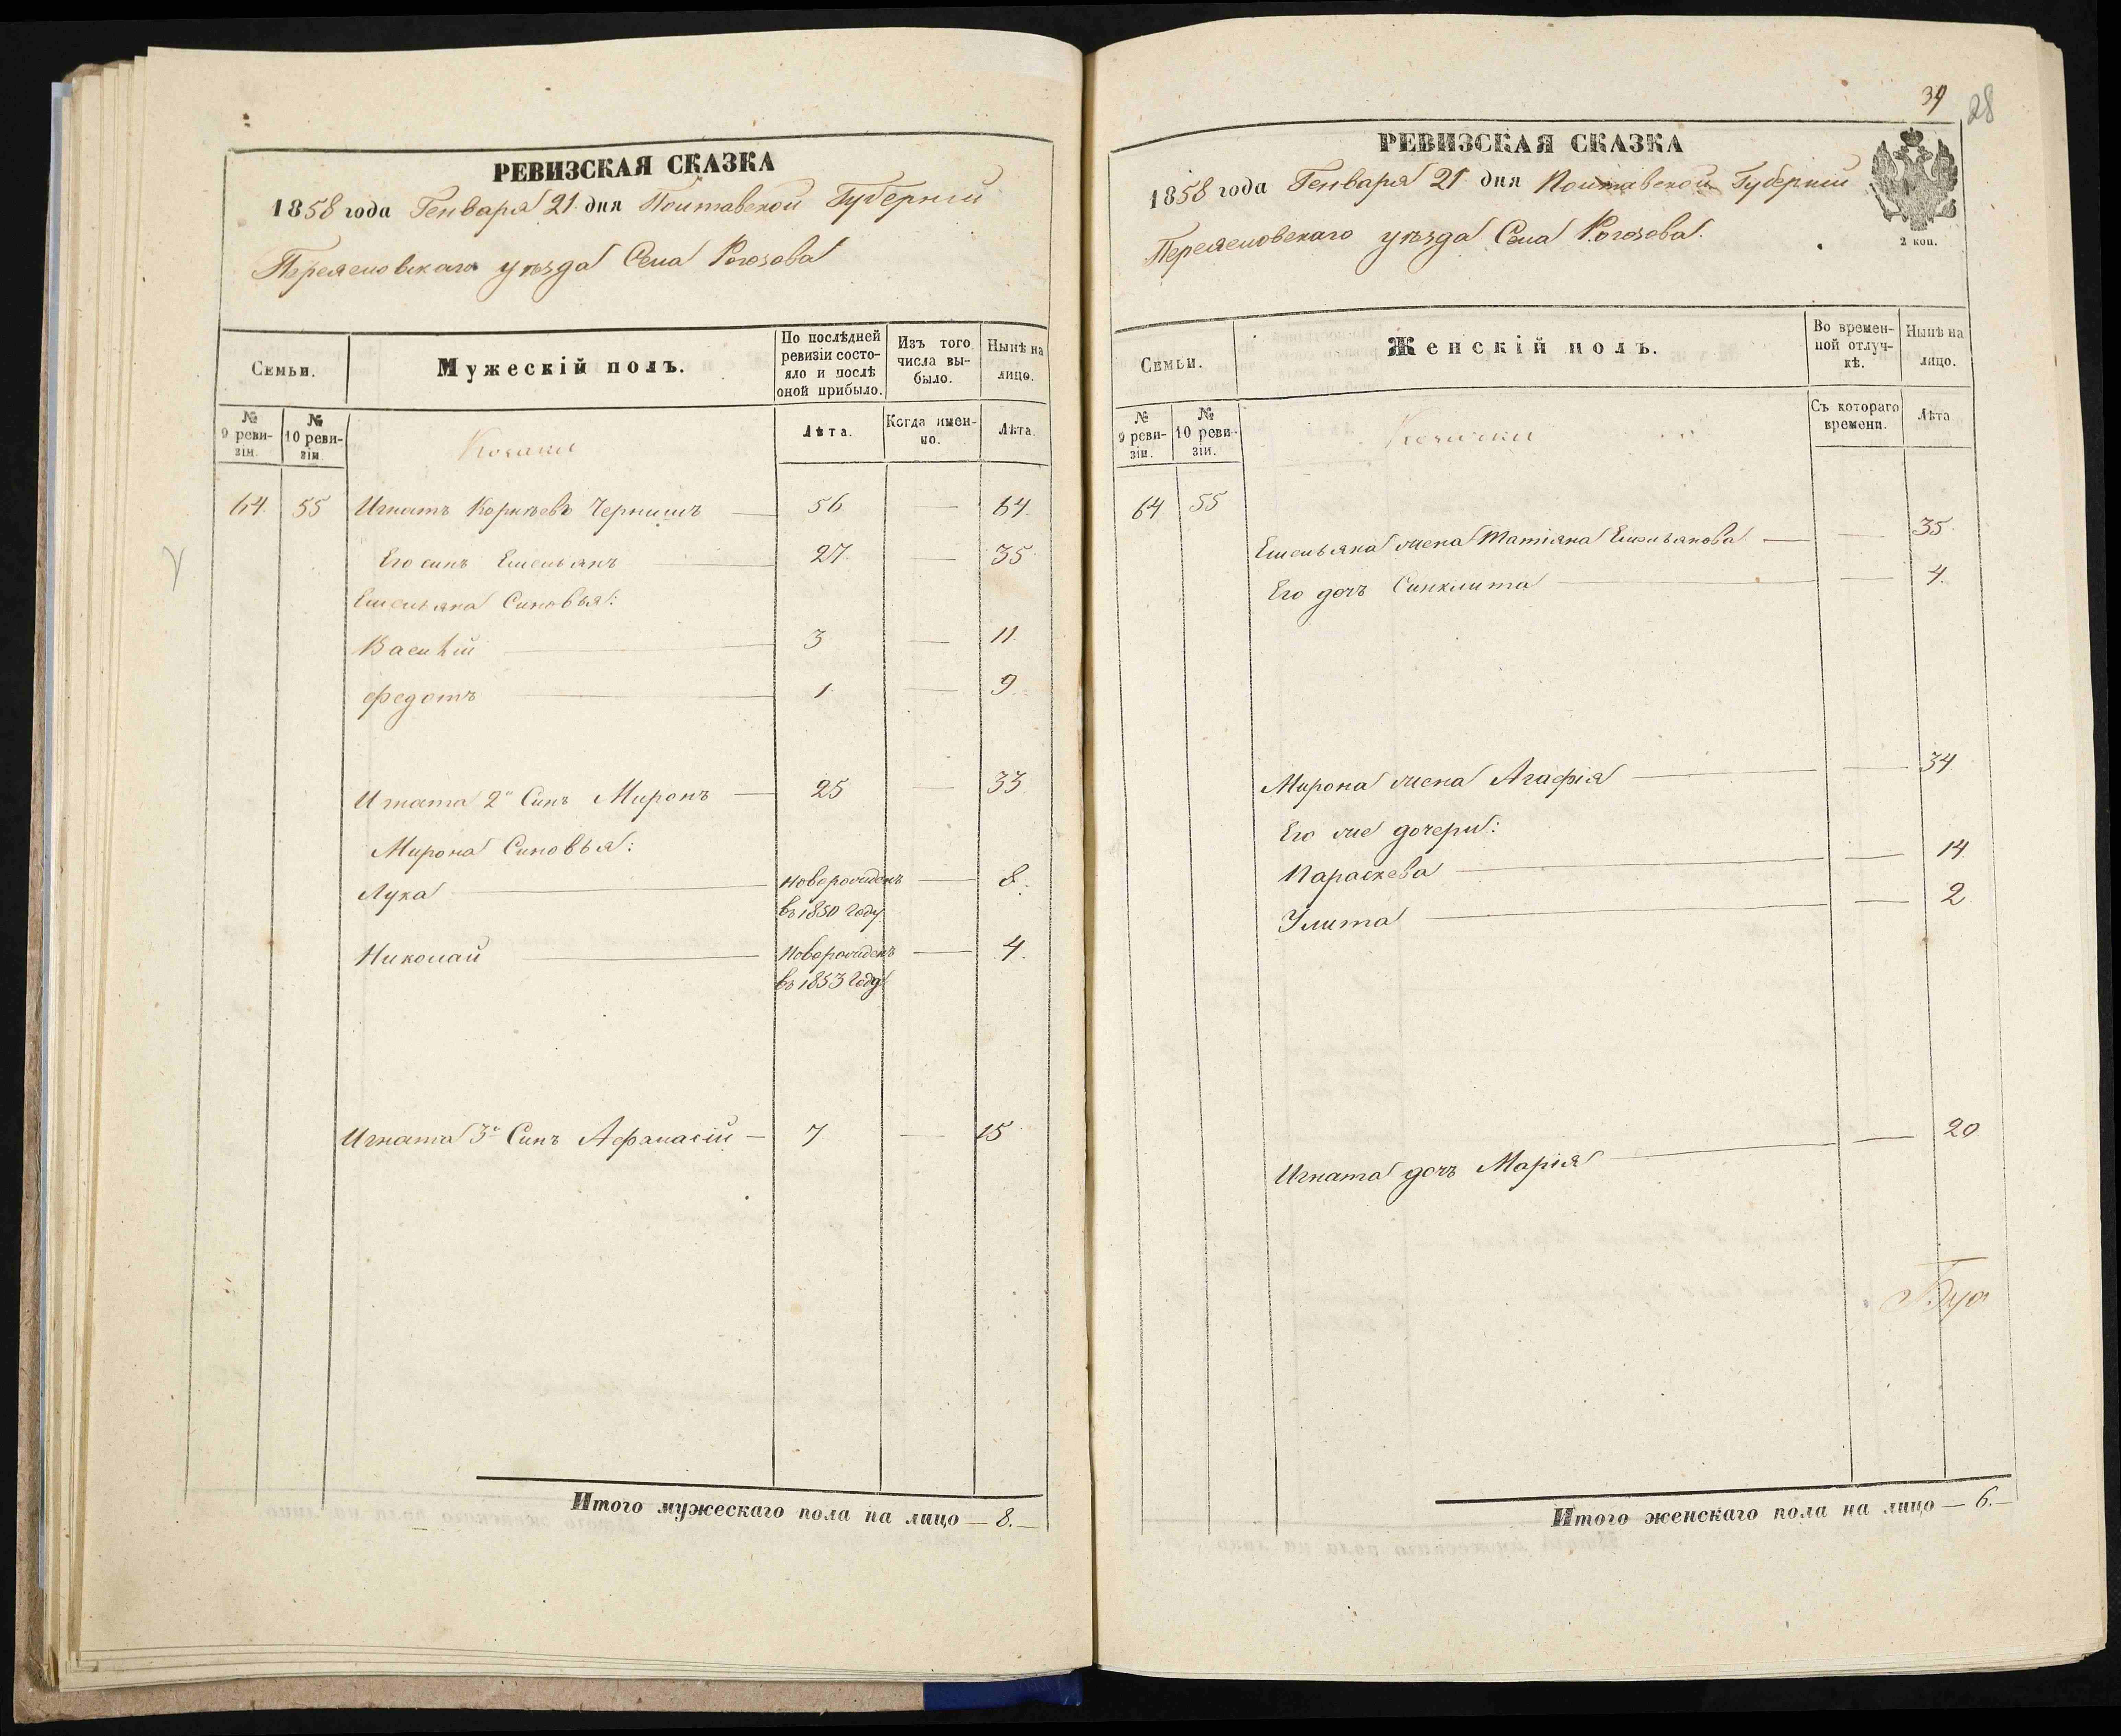 РЕВИЗСКАЯ СКАЗКА
1858 года Генваря 21 дня Полтавской Губерніи
Переяславскаго уѣзда Села Рогозова
Семьи.
Мужескій полъ.
По послѣдней ревизіи состояло и послѣ оной прибыло.
Изъ того числа выбыло.
Нынѣ на лицо.
№ 9 ревизіи.
№ 10 ревизіи.
Козаки
Лѣта.
Когда именно.
Лѣта.
64. 55 Игнатъ Корнѣевъ Чернишъ — 56 — 64.
Его синъ Емельянъ — 27 — 35
Емельяна Синовья:
Василій — 3 — 11.
Федотъ — 1 — 9.
Игната 2й Синъ Миронъ — 25 — 33.
Мирона Синовья:
Лука — Новорожденъ — 8.
въ 1850 году
Николай — Новорожденъ — 4.
въ 1853 году
Игната 3й Синъ Афанасій — 7 — 15
Итого мужескаго пола на лицо — 8. —
39
28
РЕВИЗСКАЯ СКАЗКА
1858 года Генваря 21 дня Полтавской Губерніи
Переяславскаго уѣзда Села Рогозова.
2 коп.
Семьи.
Женскій полъ.
Во временной отлучкѣ.
Нынѣ на лицо.
№ 9 ревизіи.
№ 10 ревизіи.
Козачки
Съ котораго времени.
Лѣта
64 55
Емельяна жена Татіяна Емельянова — — 35.
Его дочъ Синклита — — 4.
Мирона жена Агафія — — 34.
Его же дочери:
Параскева — — 14.
Улита — — 2
Игната дочъ Марія — — 20
Итого женскаго пола на лицо — 6. —